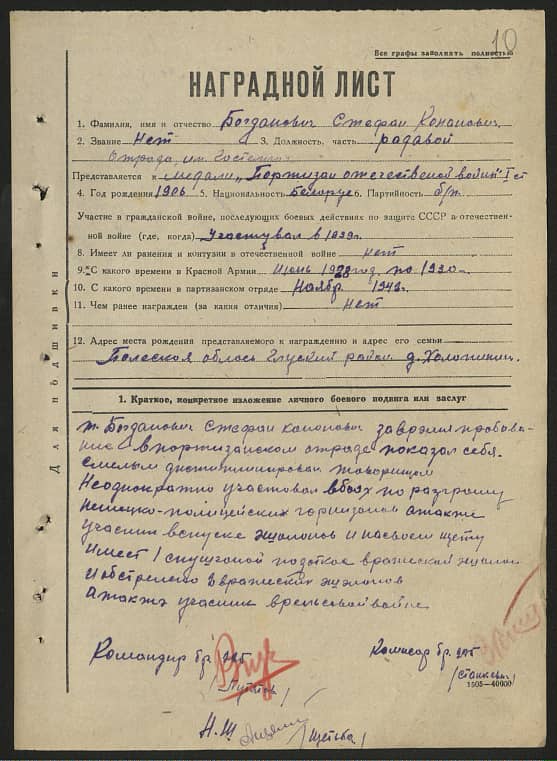 10
Все графы заполнять полностью
НАГРАДНОЙ ЛИСТ
1. Фамилия, имя и отчество Богданович Стефан Конанович
2. Звание Нет 3. Должность, часть радавой
Отрада, им. Гостелло
Представляется к медали „Портизан отечественой войны" I ст
4. Год рождения 1906 5. Национальность Белорус 6. Партийность б/п
Участие в гражданской войне, последующих боевых действиях по защите СССР в отечествен-
ной войне (где, когда) Участувал в 1939г.
8. Имеет ли ранения и контузии в отечественной войне нет
9. С какого времени в Красной Армии Июнь 1928 год по 1930г.
10. С какого времени в партизанском отряде Ноябр. 1942г.
11. Чем ранее награжден (за какия отличия) Нет
12. Адрес места рождения представляемого к награждению и адрес его семьи
Полеская облось Глуский район д.
Для подшивки
1. Краткое, конкретное изложение личного боевого подвига или заслуг
т. Богданович Стефан
в портизанском отраде показал себя.
Смелым товарищом
Неоднократно участовал в боях по разгрому
Немецко-полицейских горнизонов атакже
участник вспуске эшолонов и насвоем щету
Имеет 1 вражеский эшолон
И обстрелено 2 вражеских эшолонов
Атакжэ участник врельсовой войне
Командир бр. 225
Комисар бр. 225
/Станкевич/
1505—40000
Н.Ш